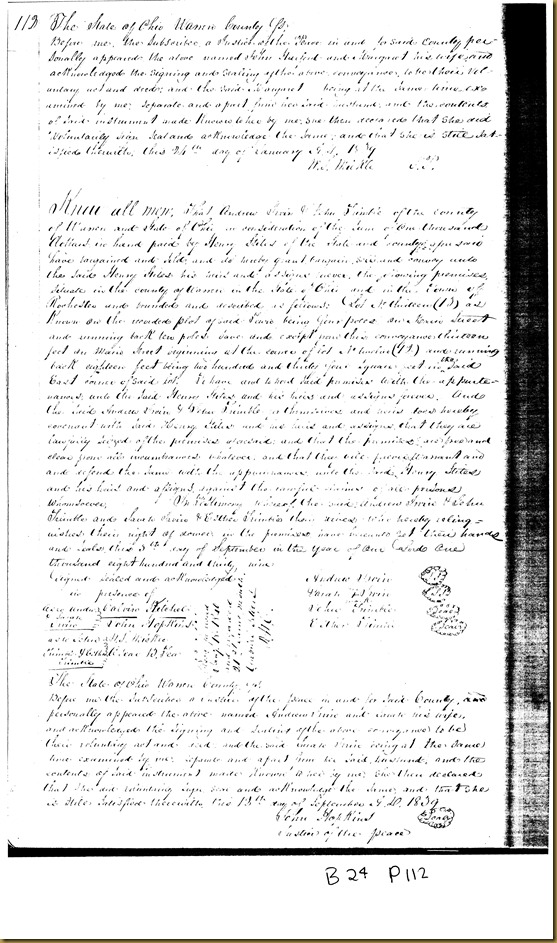 112 The State of Ohio Warren County Ss:
Before me, the Subscriber a Justice of the Peace in and for said County per
sonally appeared the above named John and Margaret his wife and
acknowledged the signing and Sealing of the above conveyance, to be their vol
untary act and deed; and the said Margaret being at the same time, exa
amined by me, Separate and apart from her Said husband, and the contents
of Said instrument made Known to her by me; She then declared that she did
Voluntarily Sign Seal and acknowledge the Same; and that she is still sat
isfied therewith, this 24th day of January A.D. 1839
J.P.
Know all men, That Andrew Irvin & John Trimble of the county
of Warren and State of Ohio in consideration of the Sum of One thousand
dollars in hand paid by Henry Stiles of the State and county aforesaid
have bargained and Sold, and do hereby grant bargain, sell and convey unto
the said Henry Stiles his heirs and assigns forever, the following premises,
Situate in the county of Warren in the State of Ohio and in the Town of
Rochester and bounded and described as follows: Lot No thirteen (13) as
Known on the recorded plot of said Town being four poles on Main Street
and running back ten poles, Save and except from this conveyance thirteen
feet on Main Street beginning at the corner of lot No twelve (12) and running
back eighteen feet being two hundred and thirty four Square feet in the Said
East corner of Said lot. To have and to hold Said premises with the appurte-
nances, unto the Said Henry Stiles and his heirs and assigns forever. And
the Said Andrew Irvin & John Trimble themselves and heirs does hereby
covenant with Said Henry Stiles and his heirs and assigns, that they are
lawfully Seized of the premises aforesaid, and that the premises are free and
clear from all incumbrances whatever, and that they will forever Warrant and
and defend the Same with the appurtenances unto the Said Henry Stiles
and his heirs and assigns, against the lawful claims of all persons
Whomsoever. In testimony whereof, the Said Andrew Irvin & John
Trimble and Sarah Irvin & Esther Trimble their wives, who hereby relinq-
uishes their right of dower in the premises have hereunto set their hands
and Seals, this 3th day of September in the Year of Our Lord One
thousand eight hundred and thirty nine
Signed Sealed and acknowledged
in presence of
Andrew Irvin Seal
Sarah Irvin Seal
John Trimble Seal
Esther Trimble Seal
John Hopkins
The State of Ohio Warren County Ss:
Before me the Subscriber a Justice of the Peace in and for Said County, and
personally appeared the above named Andrew Irvin and Sarah his wife,
and acknowledged the Signing and Sealing of the above conveyance to be
their voluntary act and deed, and the said Sarah Irvin being at the Same
time examined by me, Separate and apart from her Said husband, and the
contents of Said instrument made Known to her by me, She then declared
that she did voluntarily Sign Seal and acknowledge the Same, and that she
is Still Satisfied therewith, this 13th day of September A.D. 1839
John Hopkins Seal
Justice of the peace
B 24 P 112